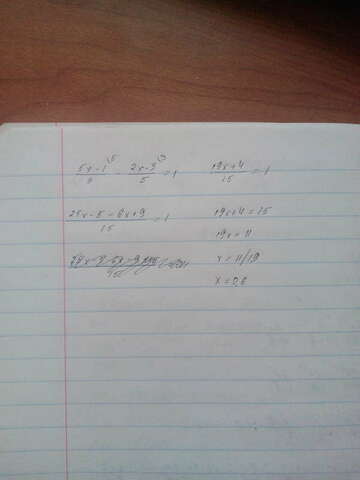 (5x-1)/3 ^(5 - (2x-3)/5 ^(3 = 1
(25x-5-6x+9)/15 = 1
(19x+4)/15 = 1
19x+4=15
19x=11
x=11/19
x=0,6